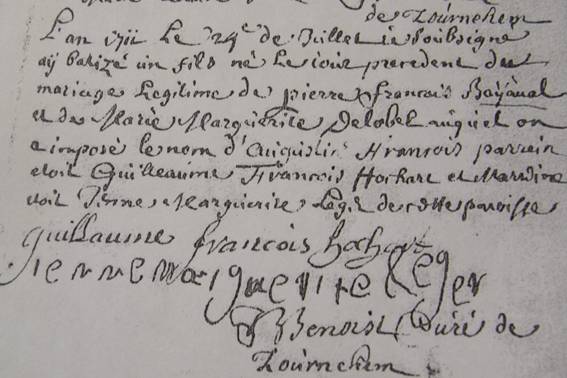 de Tournehem
L'an 1711 Le 24e de Juillet ie soubsigné
aÿ batizé un fils né Le iour precedent du
mariage Legitime de pierre françois Bayaval
et de Marie Marguerite Delobel auquel on
a imposé le nom d'Augustin françois parrein
etoit Guilleaume François Hochart et Mareine
etoit Jenne Marguerite Legr de cette paroisse
guillaume francois hochart
jenne marguerite leger
Benoist Curé de
Tournehem